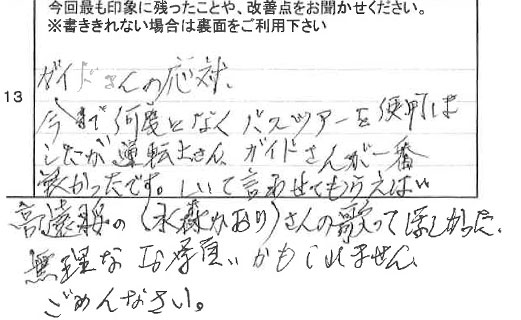 今回最も印象に残ったことや、改善点をお聞かせください。
※書ききれない場合は裏面をご利用下さい
13
ガイドさんの応対、
今まで何度となくバスツアーを使用は
したが運転士さん、ガイドさんが一番
良かったです。しいて言わせてもらえばい
高遠桜の(水森かおり)さんの歌ってほしかった、
無理なお願いかもしれません
ごめんなさい。